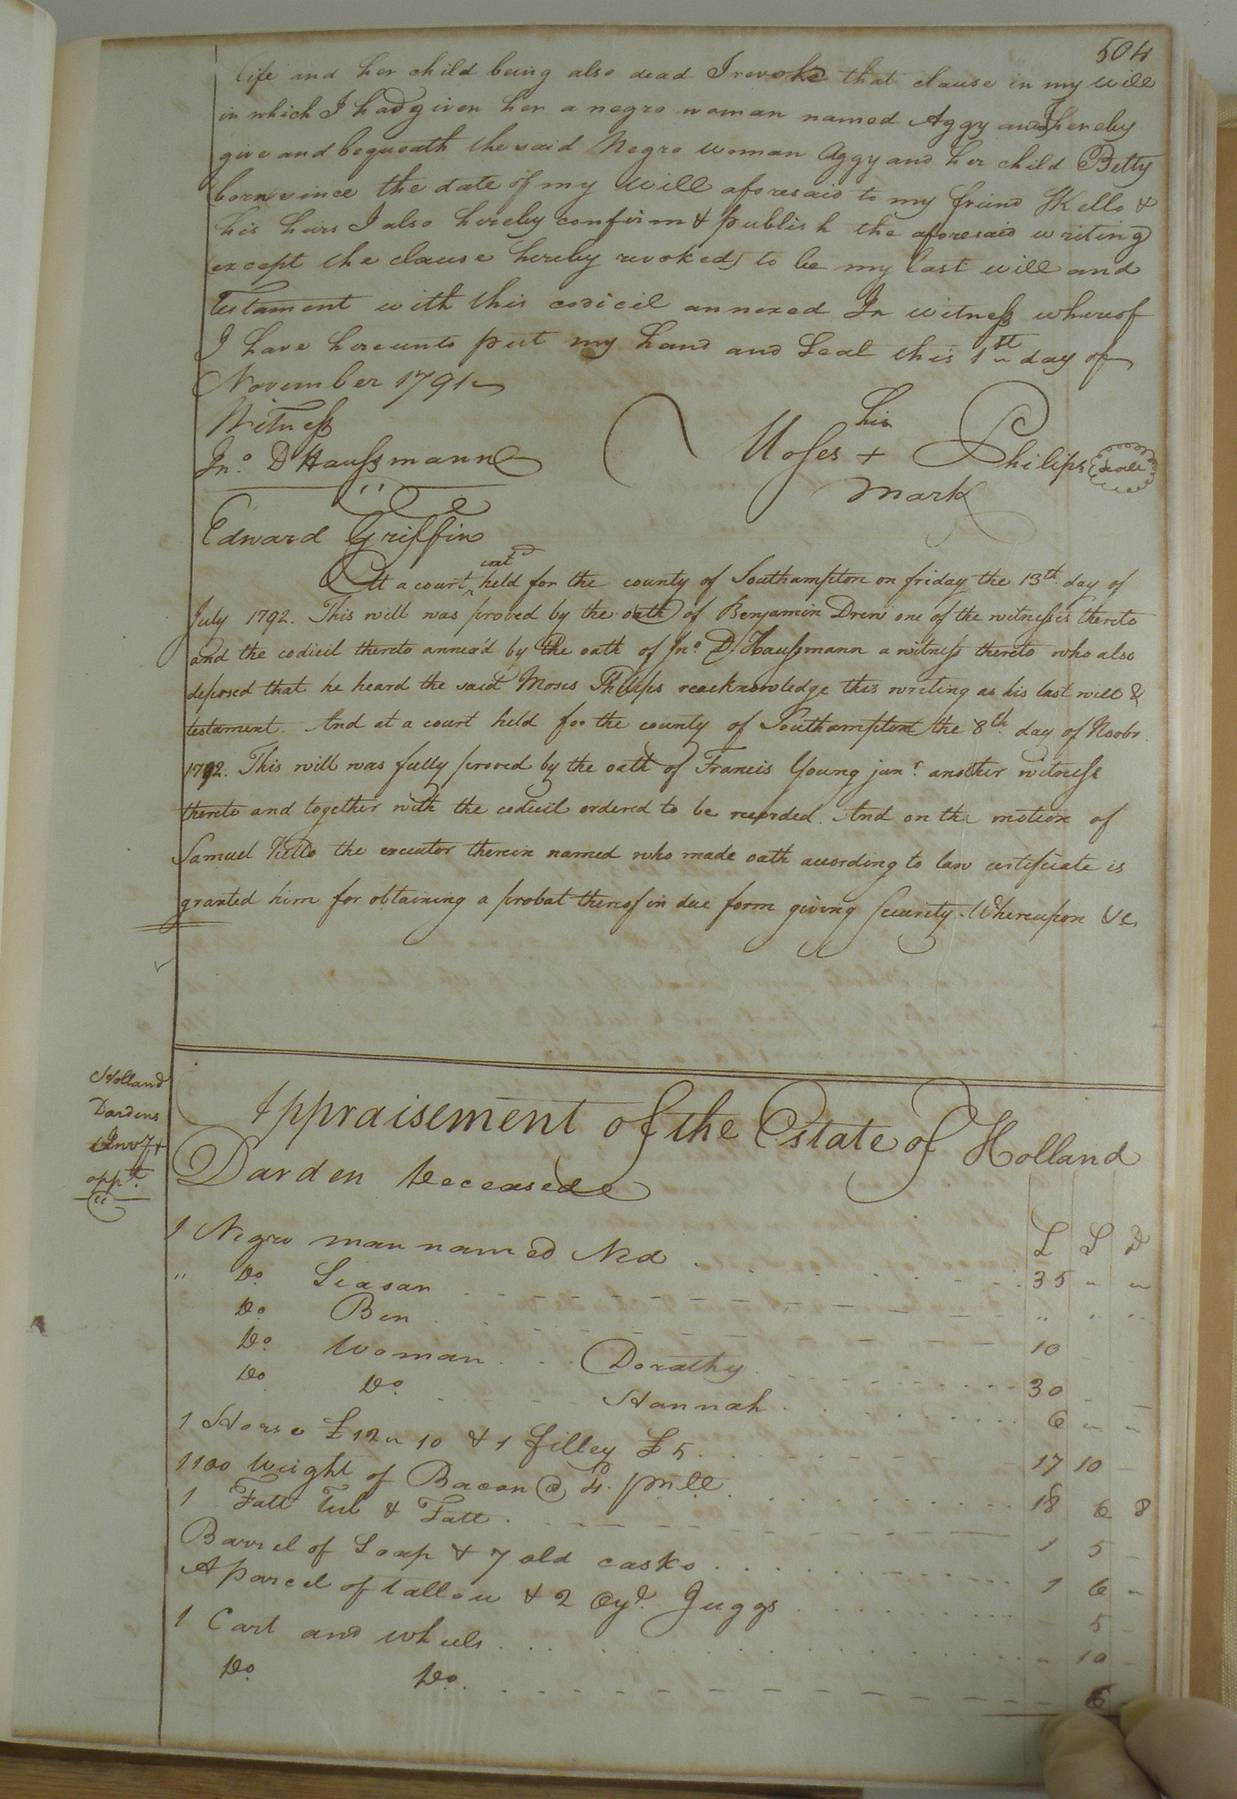 504
life and her child being also dead I revoke that clause in my will
in which I had given her a negro woman named Aggy and I hereby
give and bequeath the said Negro woman Aggy and her child Betty
born since the date of my will aforesaid to my friend SKello &
his heirs I also hereby confirm & publish the aforesaid writing
(except the clause hereby revoked) to be my last will and
Testament with this codicil annexed In witness whereof
I have hereunto put my hand and Seal this 1th day of
November 1791
Witness
his
Jno. D Haussmann
Moses + Philips (seal)
mark
Edward Griffin
contd
At a court ^ held for the county of Southampton on friday the 13th day of
July 1792. This will was proved by the oath of Benjamin Drew one of the witnesses thereto
and the codicil thereto annex'd by the oath of Jno. D. Haussmann a witness thereto who also
deposed that he heard the said Moses Philips reacknowledge this writing as his last will &
testament. And at a court held for the county of Southampton the 8th day of Novbr.
1792. This will was fully proved by the oath of Francis Young junr. another witness
thereto and together with the codicil ordered to be recorded. And on the motion of
Samuel Kello the executor therein named who made oath according to law certificate is
granted him for obtaining a probat thereof in due form giving security. Whereupon &c.
Holland
Dardens
Invy &
appt.
Appraisement of the Estate of Holland
Darden Deceased
£ S D
1 Negro man named Ned . . . 35 " "
" Do Seasar " " "
Do Ben 10
Do Woman Dorathy 30
Do Do Hannah 6 " "
1 Horse £12 " 10 & 1 filley £5 17 10 -
1100 Weight of Bacon @ 4d. pr lb 18 6 8
1 Fatt Tub & Fatt 1 5 -
Barrel of Soap & 7 old casks 1 6 -
A parcel of tallow & 2 Juggs - 5 -
1 Cart and wheels " 10 -
Do Do 6